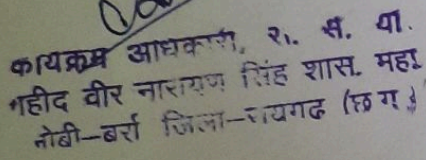 कार्यक्रम अधिकारी, रा. से. यो.
शहीद वीर नारायण सिंह शास. महा
जोबी–बर्रा जिला–रायगढ (छ ग )